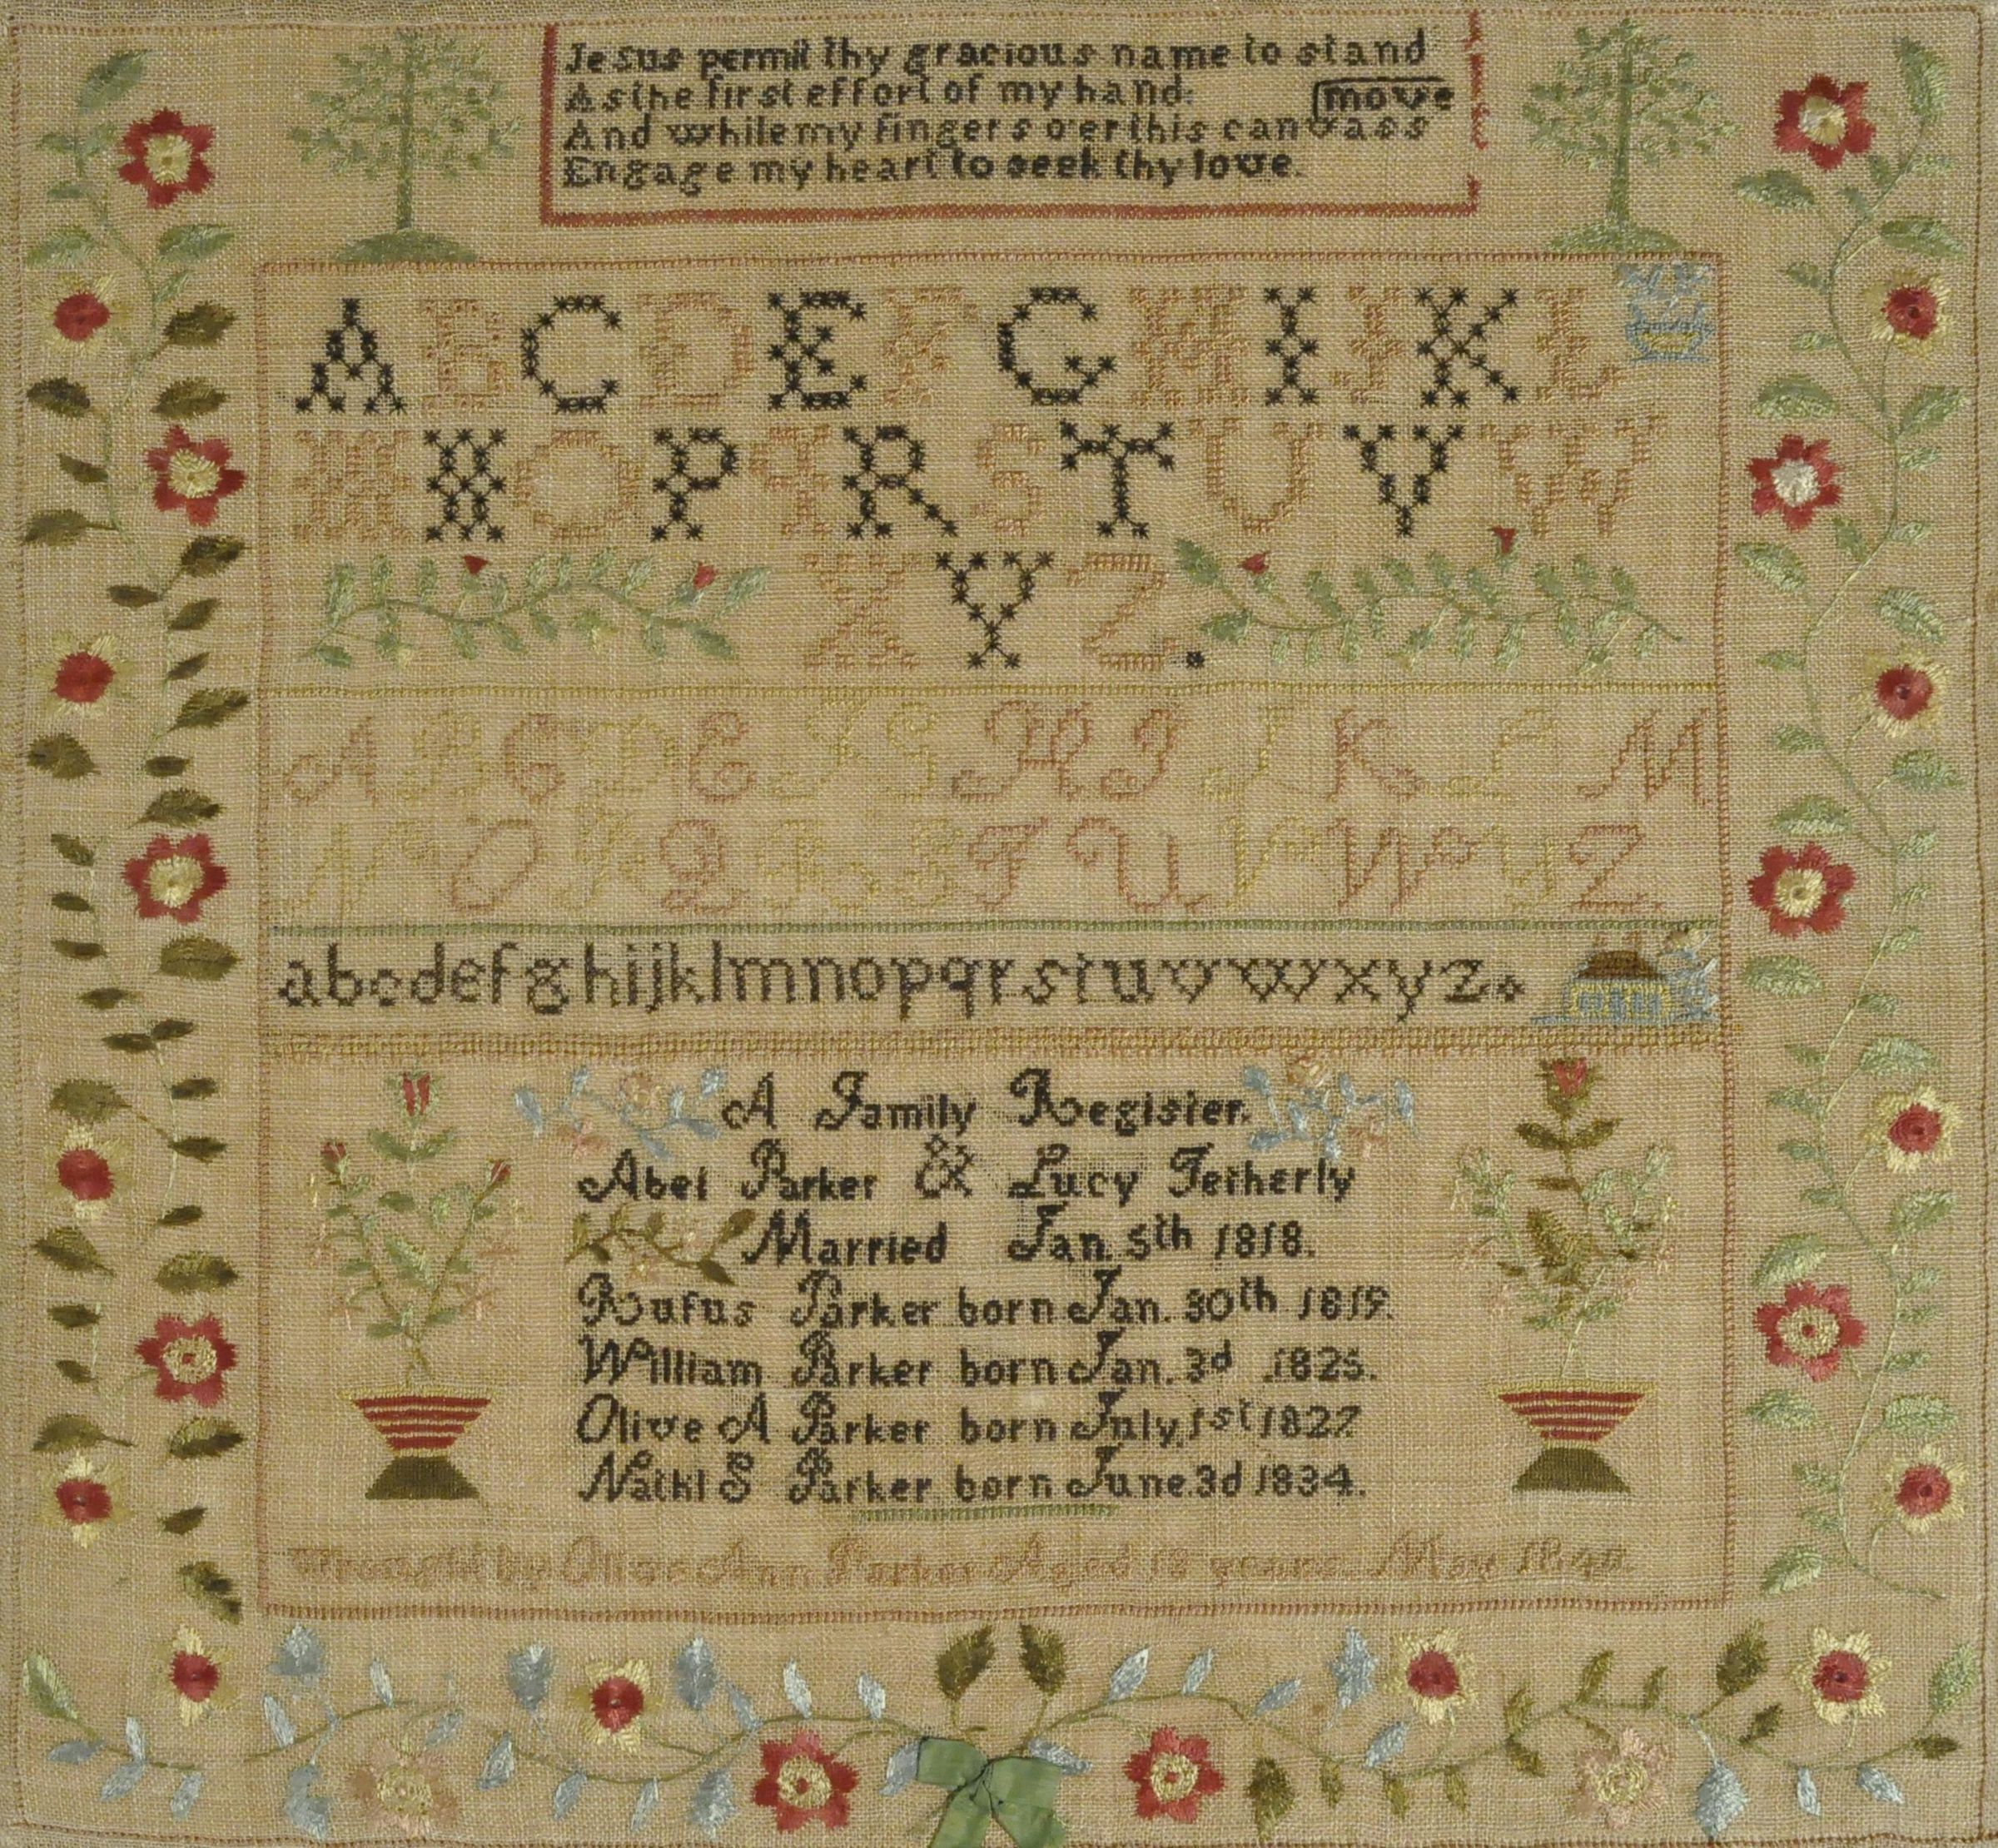 Jesus permit thy gracious name to stand
As the first effort of my hand:
And while my fingers o'er this canvass move
Engage my heart to seek thy love.
A B C D E F G H I J K L
M N O P Q R S T U V W
X Y Z.
A B C D E F G H I J K L M
N O P Q R S T U V W Y Z.
abcdefghijklmnopqrstuvwxyz.
A Family Register.
Abel Parker & Lucy Tetherly
Married Jan. 5th 1818.
Rufus Parker born Jan. 30th 1819.
William Parker born Jan. 3d 1825.
Olive A Parker born July 1st 1827
Nathl S Parker born June 3d 1834.
Wrought by Olive Ann Parker Aged years May